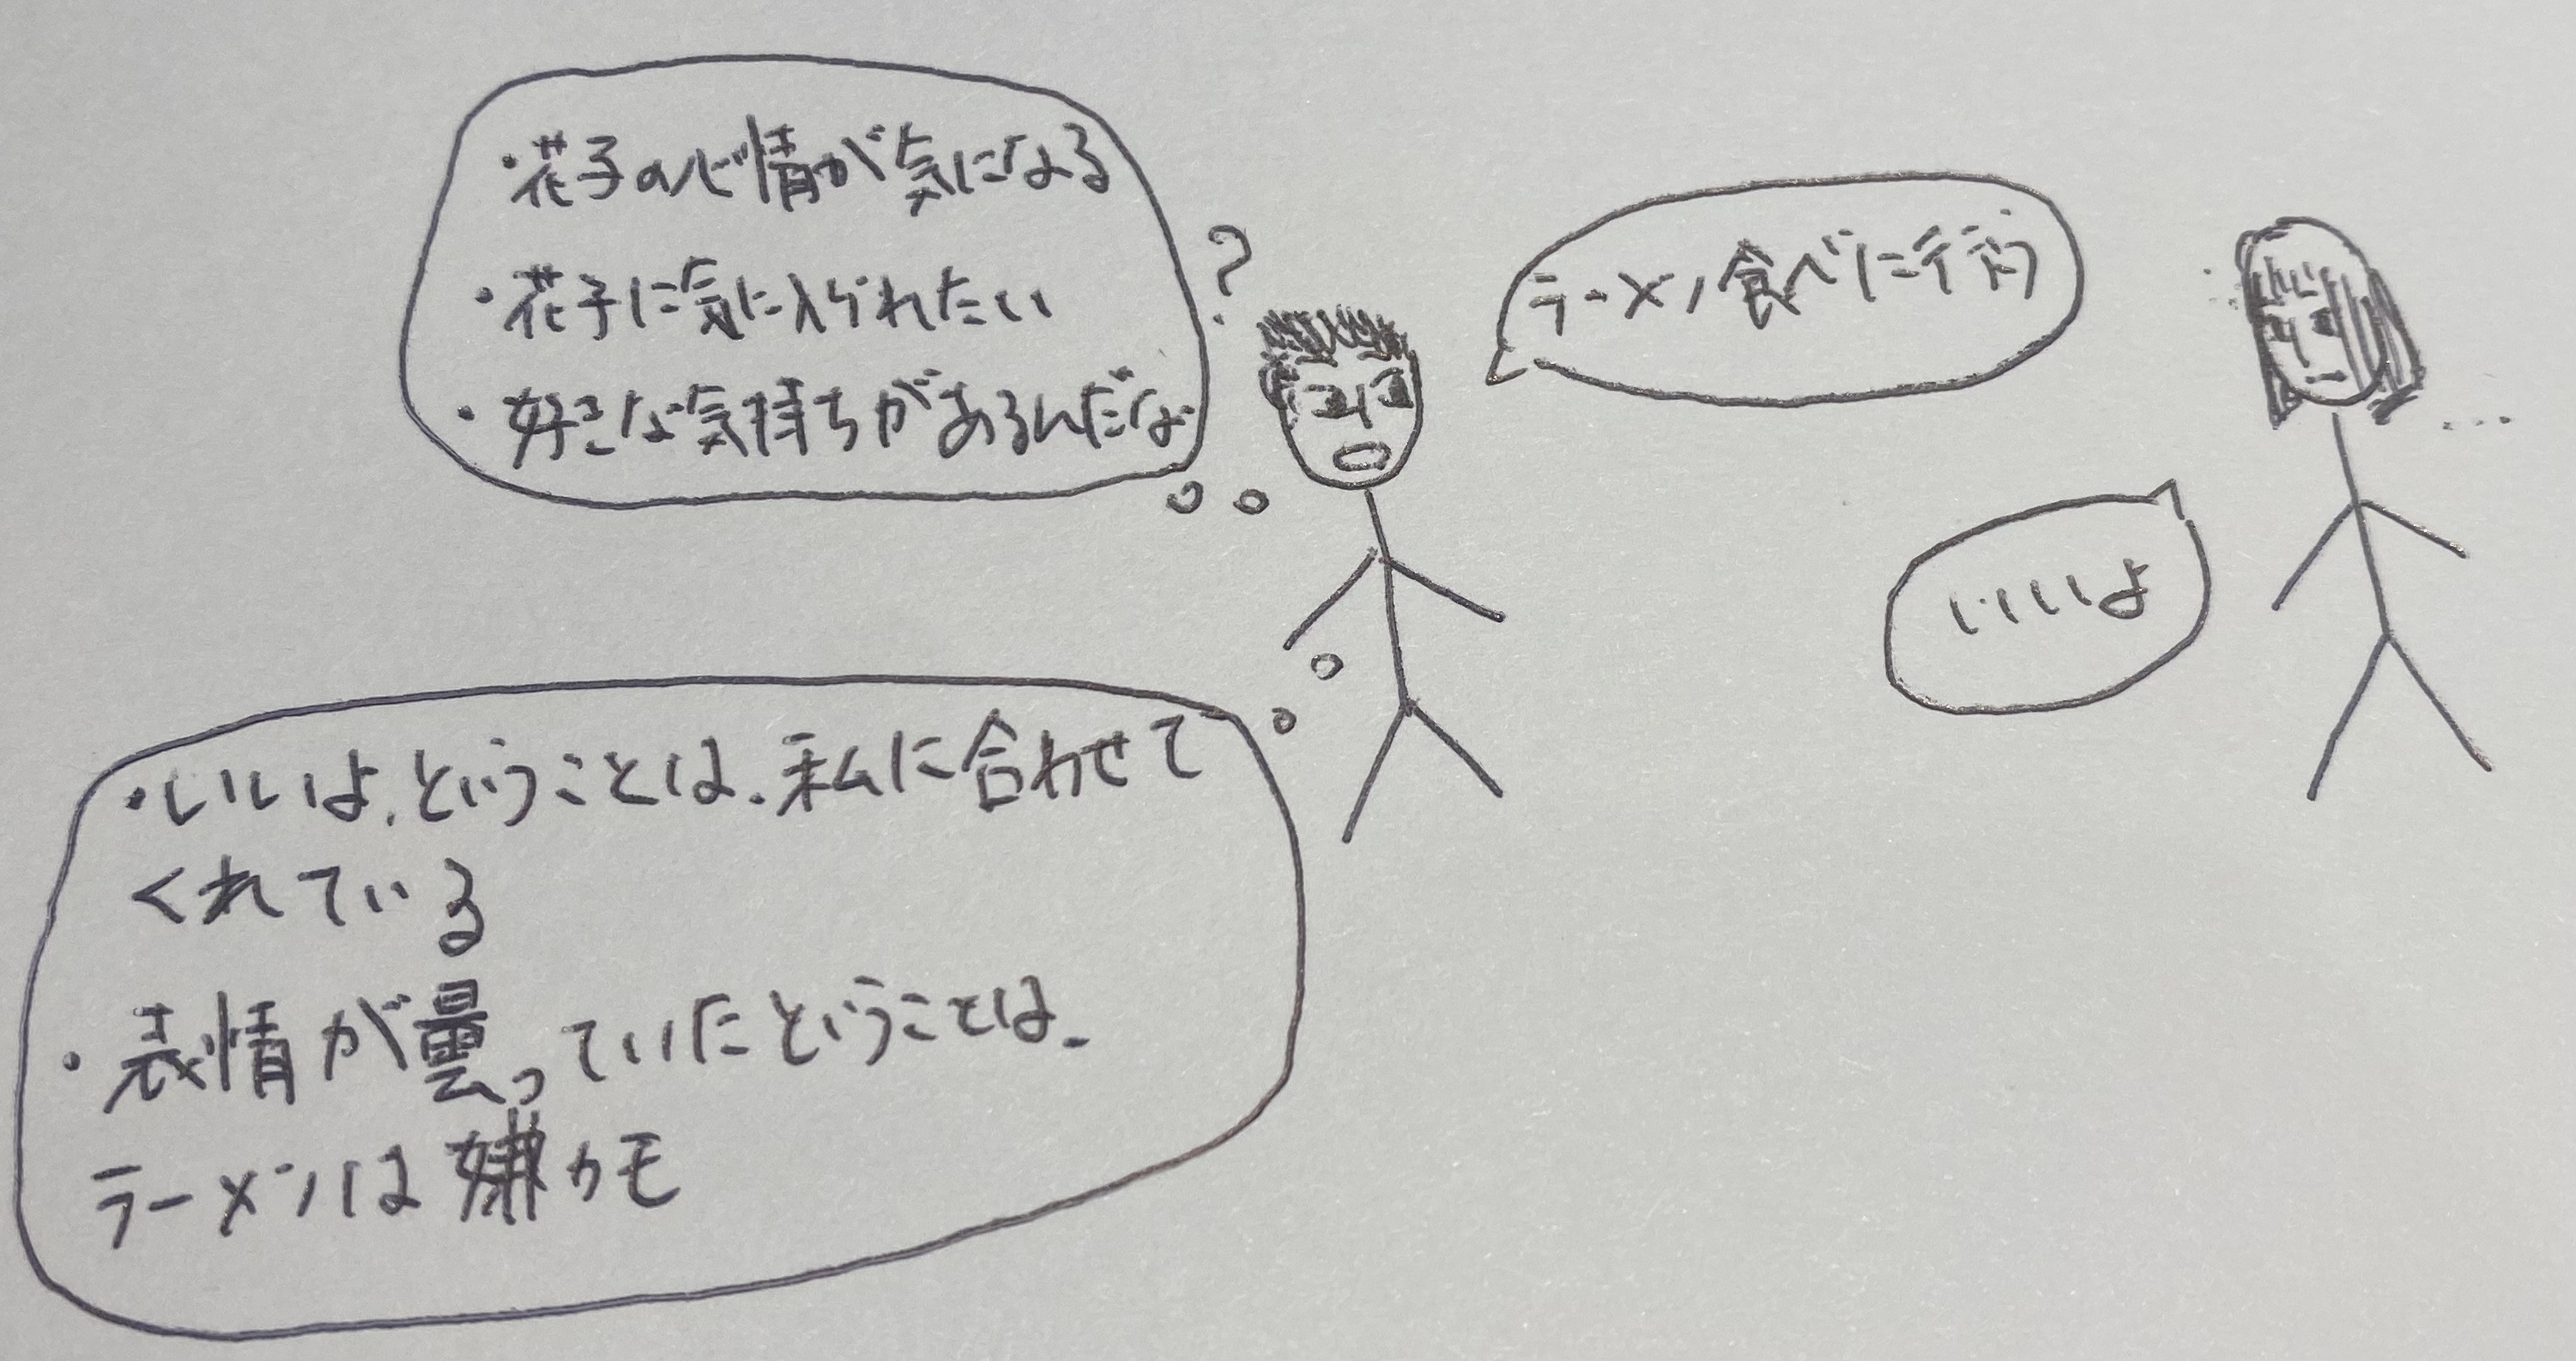 ・花子の心情が気になる
・花子に気に入られたい
・好きな気持ちがあるんだな
?
ラーメン食べに行こう
いいよ
・いいよ、ということは、私に合わせて
くれている
・表情が曇っていたということは、
ラーメンは嫌カモ